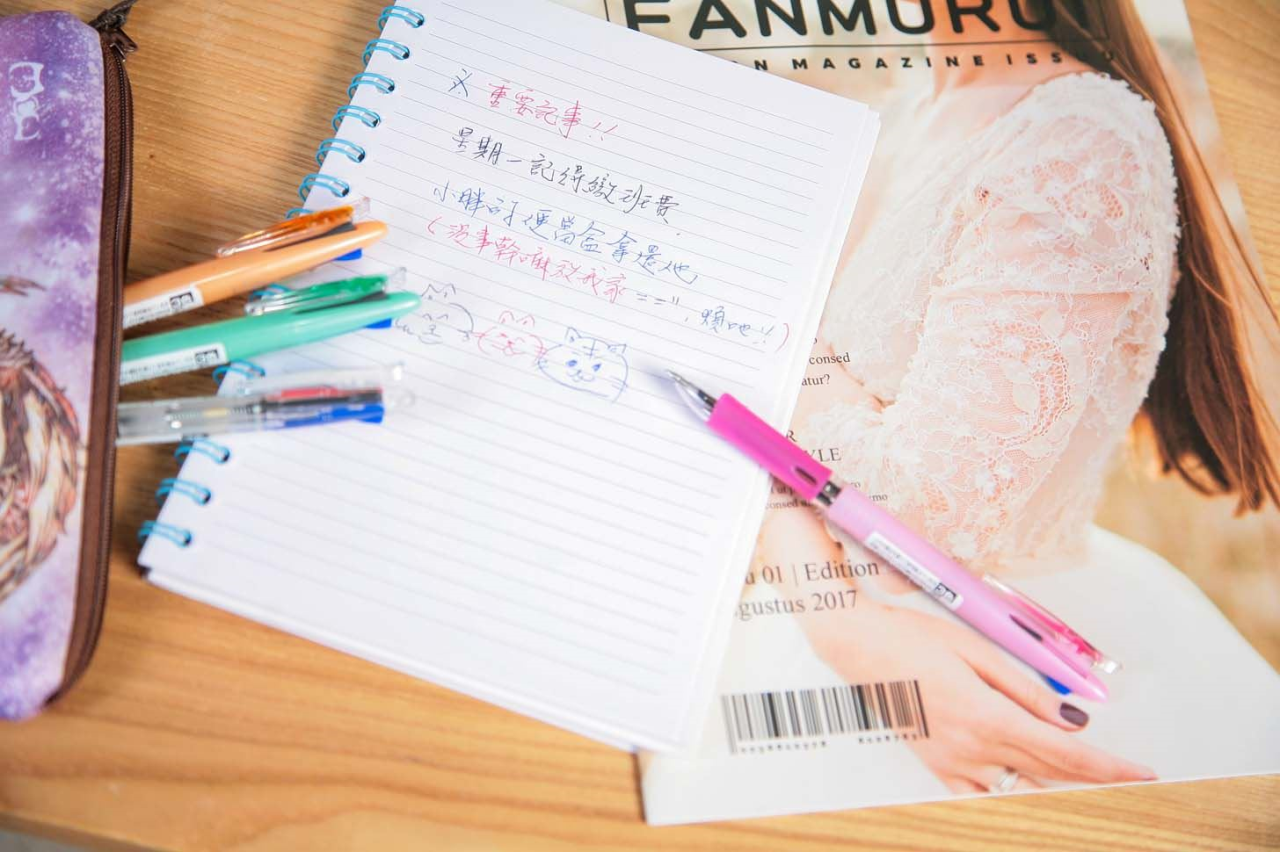 FANMURU
N MAGAZINE ISS
※ 重要記事!!
星期一記得繳班費.
小胖的便當盒拿還他
(沒事幹嘛放我家 ==", 煩吔!!)
consed
atur?
R
YLE
01 | Edition
gustus 2017